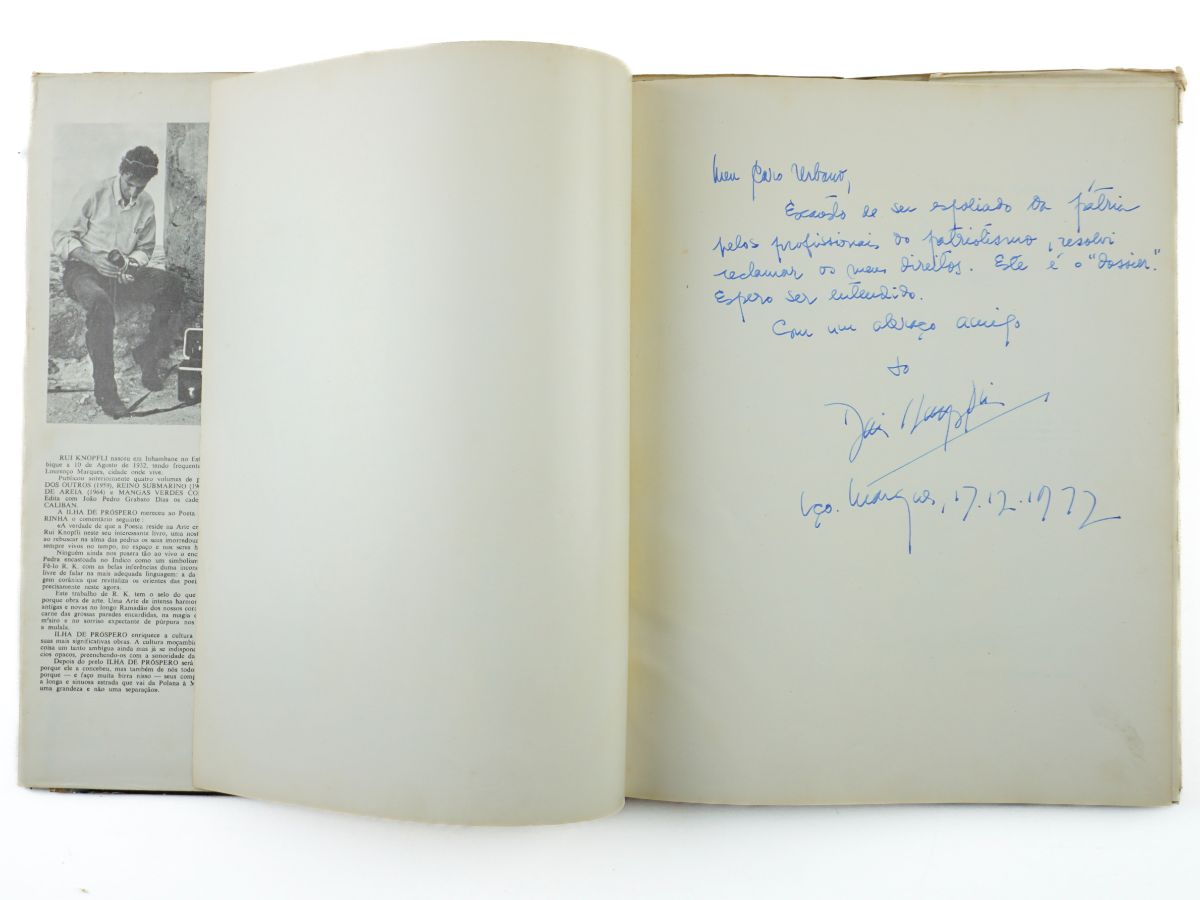 RUI KNOPFLI nasceu em Inhambane no Est
bique a 10 de Agosto de 1932, tendo frequenta
Lourenço Marques, cidade onde vive.
Publicou anteriormente quatro volumes de p
DOS OUTROS (1959), REINO SUBMARINO (19
DE AREIA (1964) e MANGAS VERDES CO
Edita com João Pedro Grabato Dias os cade
CALIBAN.
A ILHA DE PRÓSPERO mereceu ao Poeta
RINHA o comentário seguinte:
«A verdade de que a Poesia reside na Arte e
Rui Knopfli neste seu interessante livro, uma nost
ao rebuscar na alma das pedras os seus imorredou
sempre vivos no tempo, no espaço e nos seres h
Ninguém ainda nos pusera tão ao vivo o enc
Pedra encastoada no Índico como um simbolism
Fê-lo R. K. com as belas inferências duma incon
livre de falar na mais adequada linguagem: a da
gem corânica que revitaliza os orientes das poe
precisamente neste agora.
Este trabalho de R. K. tem o selo do que
porque obra de arte. Uma Arte de intensa harmo
antigas e novas no longo Ramadão dos nossos cora
carne das grossas paredes encardidas, na magia
m'siro e no sorriso expectante de púrpura nos
a mulala.
ILHA DE PRÓSPERO enriquece a cultura
suas mais significativas obras. A cultura moçambi
coisa um tanto ambígua ainda mas já se indispon
cios opacos, preenchendo-os com a sonoridade da
Depois do prelo ILHA DE PRÓSPERO será
porque ele a concebeu, mas também de nós todo
porque — e faço muita birra nisso — seus comp
a longa e sinuosa estrada que vai da Polana à M
uma grandeza e não uma separação».
Meu Caro Urbano,
Exausto de ser espoliado da pátria
pelos profissionais do patriotismo, resolvi
reclamar os meus direitos. Este é o "dossier".
Espero ser entendido.
Com um abraço amigo
do
Rui Knopfli
Lço. Marques, 17.12.1972